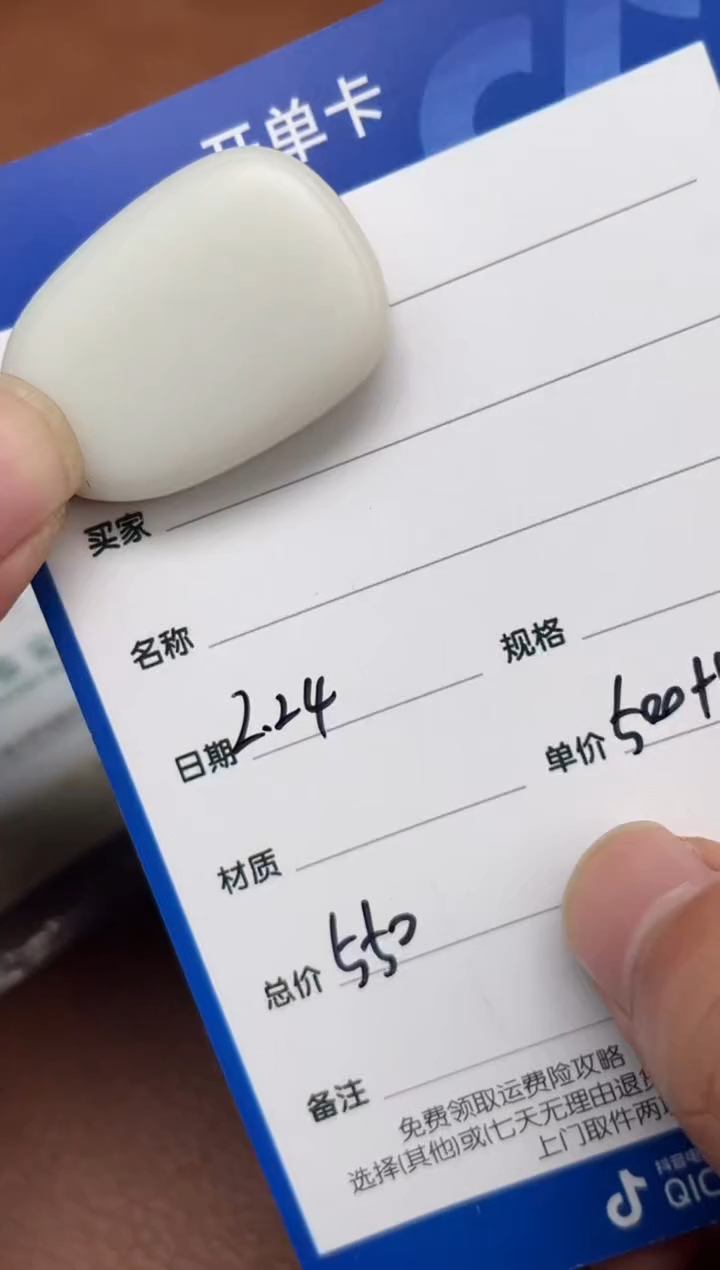 开单卡
买家
名称
规格
日期 2.24
单价 500+
材质
总价 550
备注
免费领取运费险攻略
选择(其他)或(七天无理由退
上门取件两
抖音电
QIC